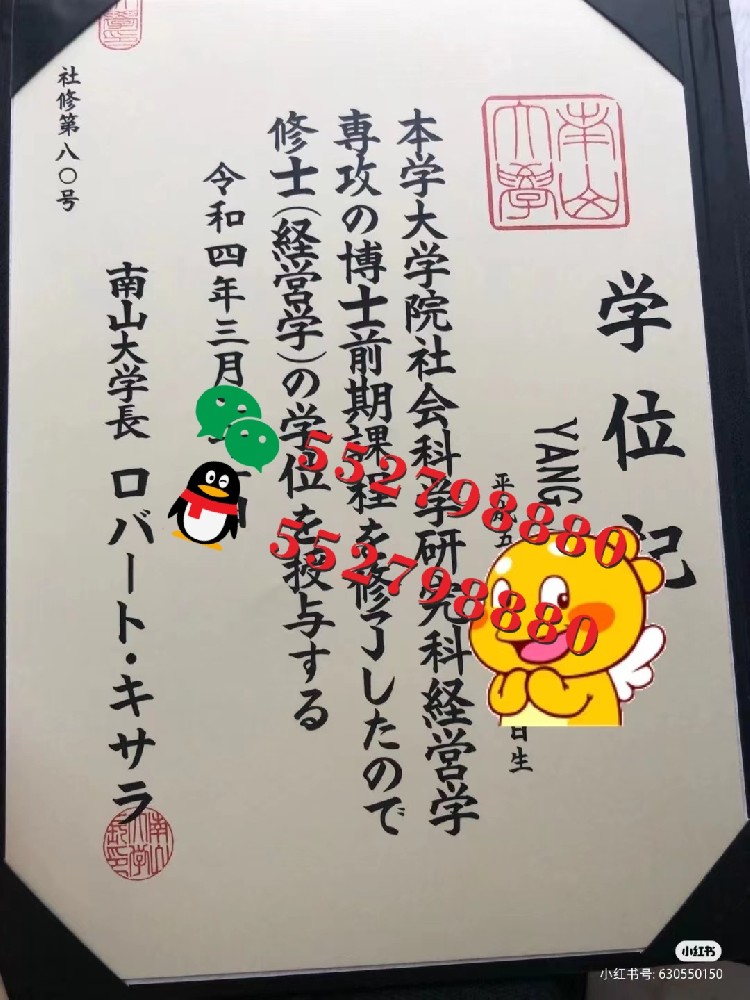 南山大学
学位記
YANG
平成五
日生
本学大学院社会科学研究科経営学
専攻の博士前期課程を修了したので
修士(経営学)の学位を授与する
令和四年三月
南山大学長 ロバート・キサラ
社修第八〇号
552798880
552798880
小红书
小红书号: 630550150